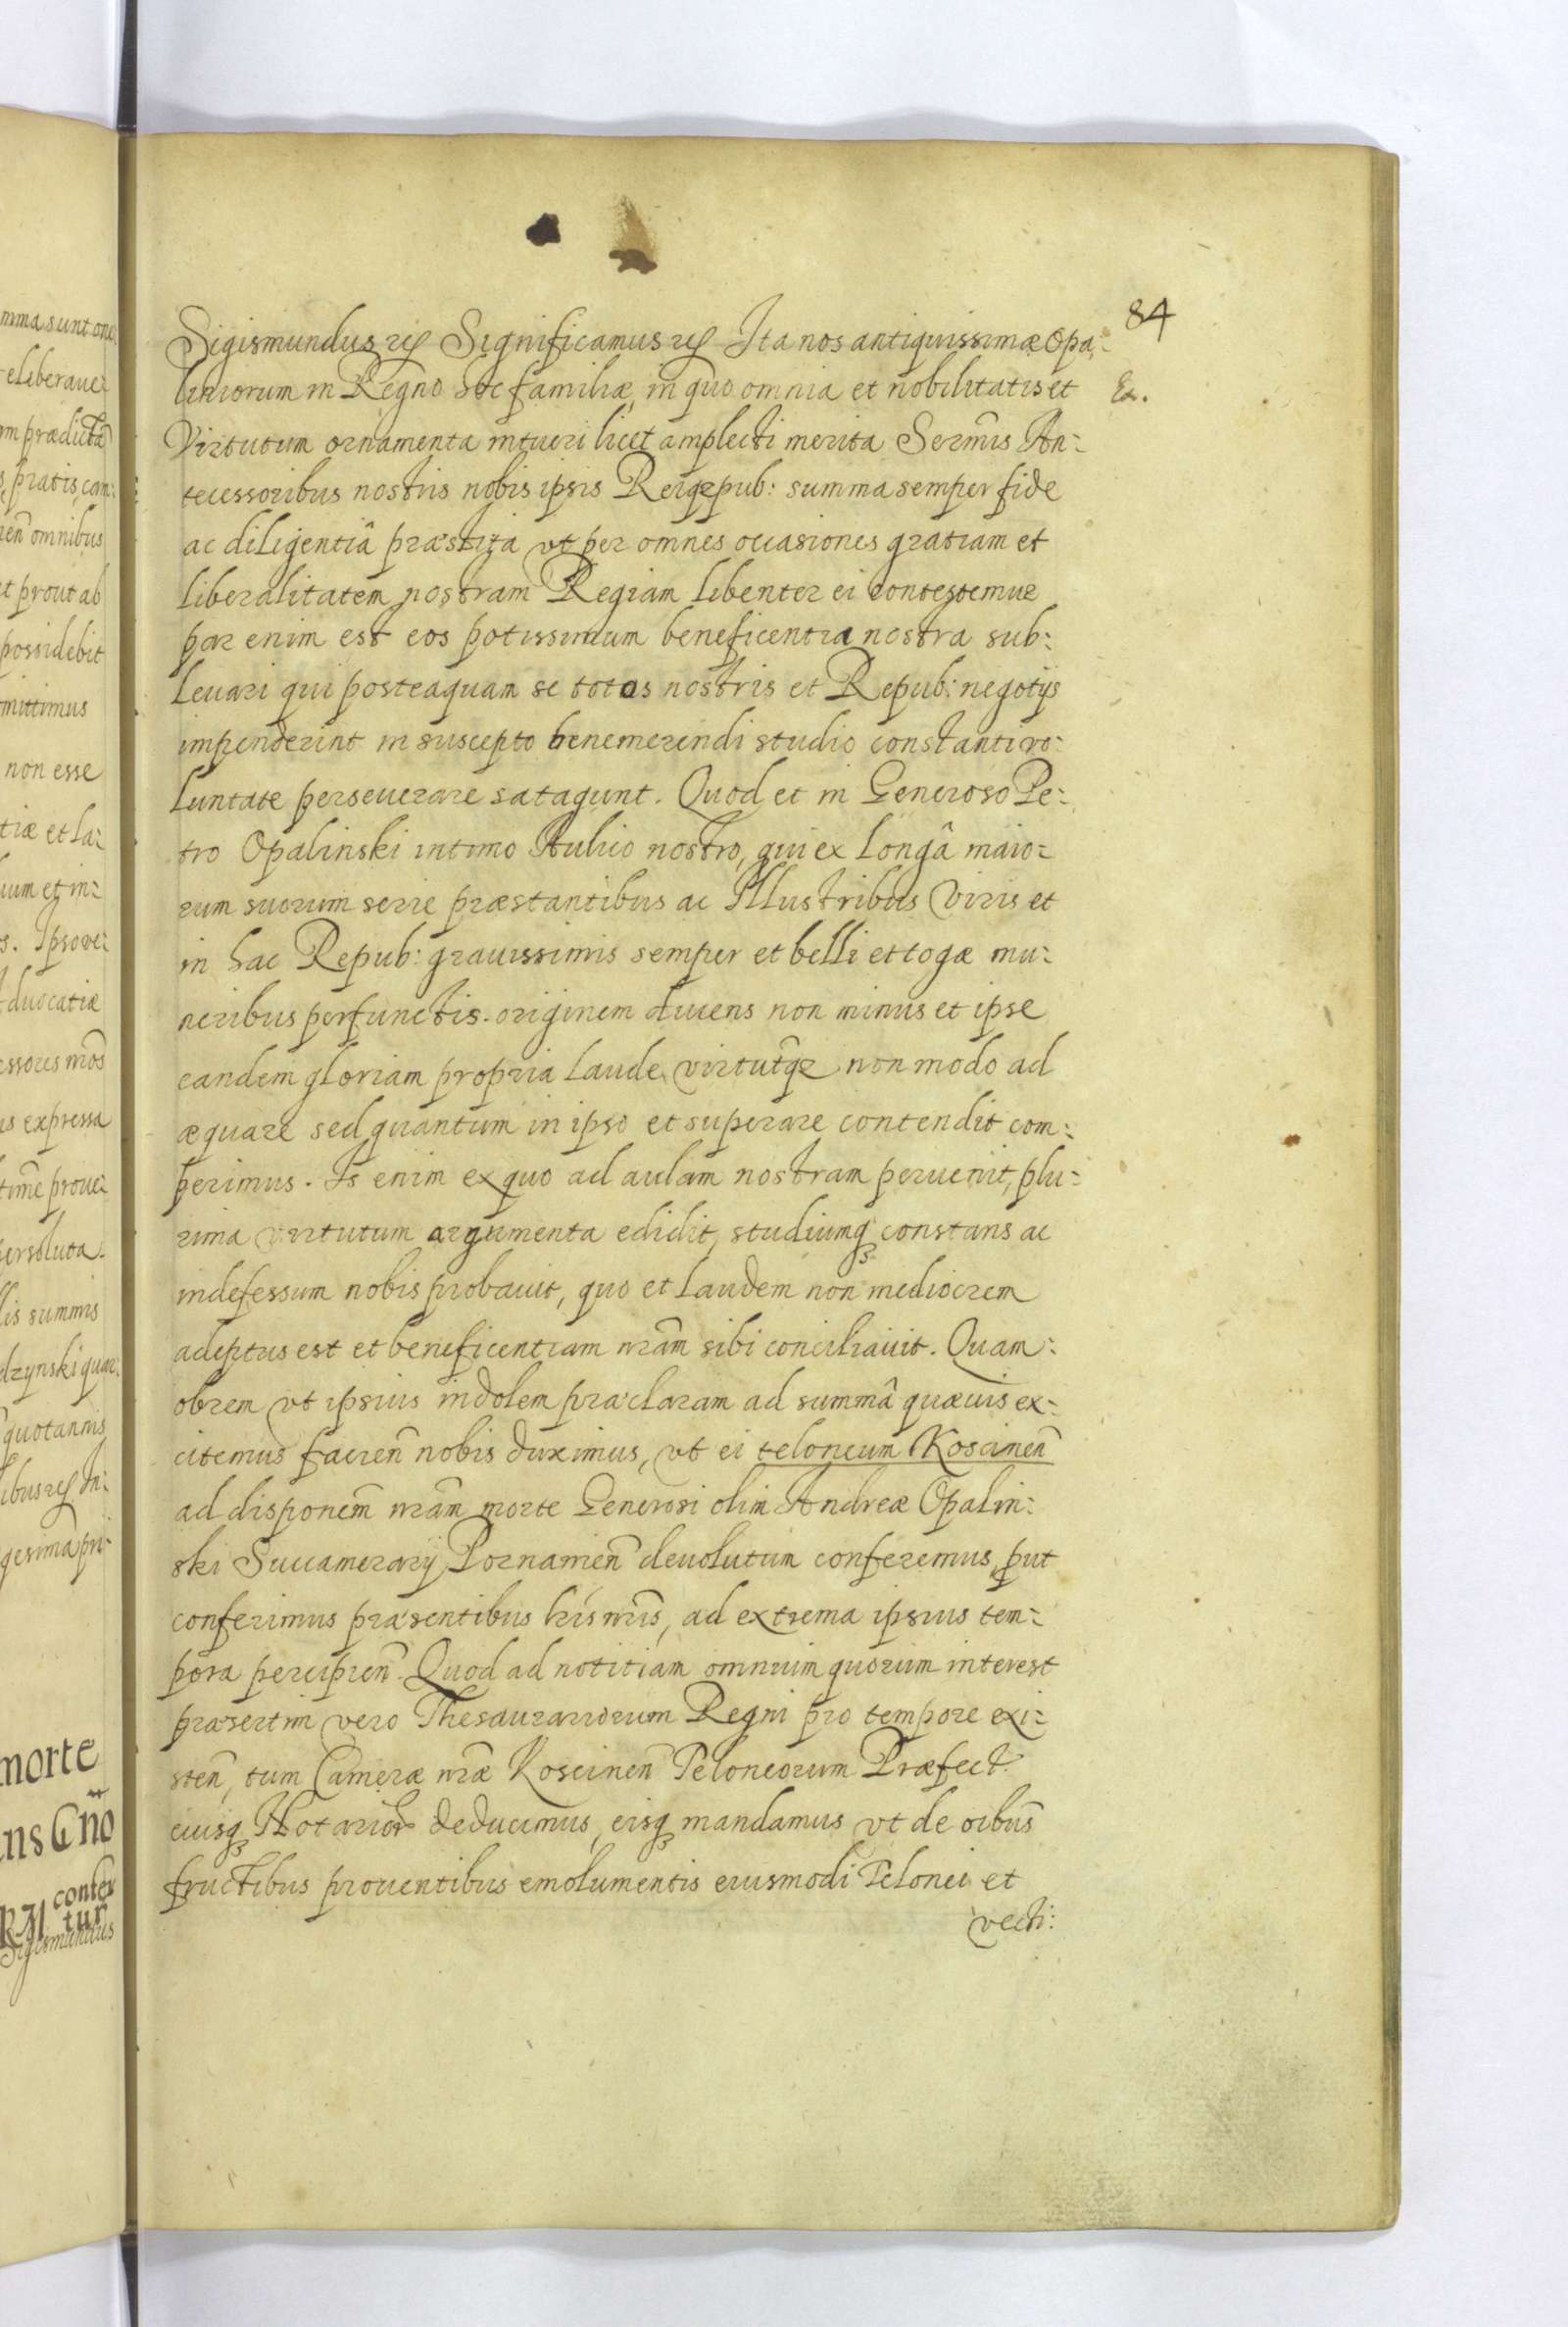 84
Sigismundus etc Significamus etc Ita nos antiquissimæ Opa:
liniorum in Regno hoc familiæ, in quo omnia et nobilitatis et
Ex.
Virtutum ornamenta intueri licet amplecti merita Sermis An:
tecessoribus nostris nobis ipsis Reiqꝫpub: summa semper fide
ac diligentiâ præstita vt per omnes occasiones gratiam et
liberalitatem nostram Regiam libenter ei contestemur
par enim est eos potissimum beneficentia nostra sub:
leuari qui posteaquam se totos nostris et Repub: negotijs
impenderint in suscepto benemerendi studio constanti vo:
luntate perseuerare satagunt. Quod et in Generoso Pe:
tro Opalinski intimo Aulico nostro, qui ex longâ maio:
rum suorum serie præstantibus ac Illustribus Viris et
in hac Repub: grauissimis semper et belli et togæ mu:
neribus perfunctis. originem ducens non minus et ipse
eandem gloriam propria laude virtutêqꝫ non modo ad
æquare sed quantum in ipso et superare contendit com:
perimus. Is enim ex quo ad aulam nostram peruenit, plu:
rima virtutum argumenta edidit, studiumqꝫ constans ac
indefessum nobis probauit, quo et laudem non mediocrem
adeptus est et beneficentiam nram̃ sibi conciliauit. Quam:
obrem vt ipsius indolem præclaram ad summâ quæuis ex:
citemus facien̄ nobis duximus, vt ei teloneum Koscinen̄
ad disponem̄ nram̃ morte Generosi olim Andreæ Opalin:
ski Succamerarij Poznanien̄ deuolutum conferemus, put
conferimus præsentibus lris nris̃, ad extrema ipsius tem:
pora percipien̄. Quod ad notitiam omnium quorum interest
præsertim vero Thesaurariorum Regni pro tempore exi:
sten̄, tum Cameræ nræ̃ Koscinen̄ Teloneorum Præfect.
eiusqꝫ Notarior̃ deducimus, eisqꝫ mandamus vt de oibus̃
fructibus prouentibus emolumentis eiusmodi Telonei et
vecti: